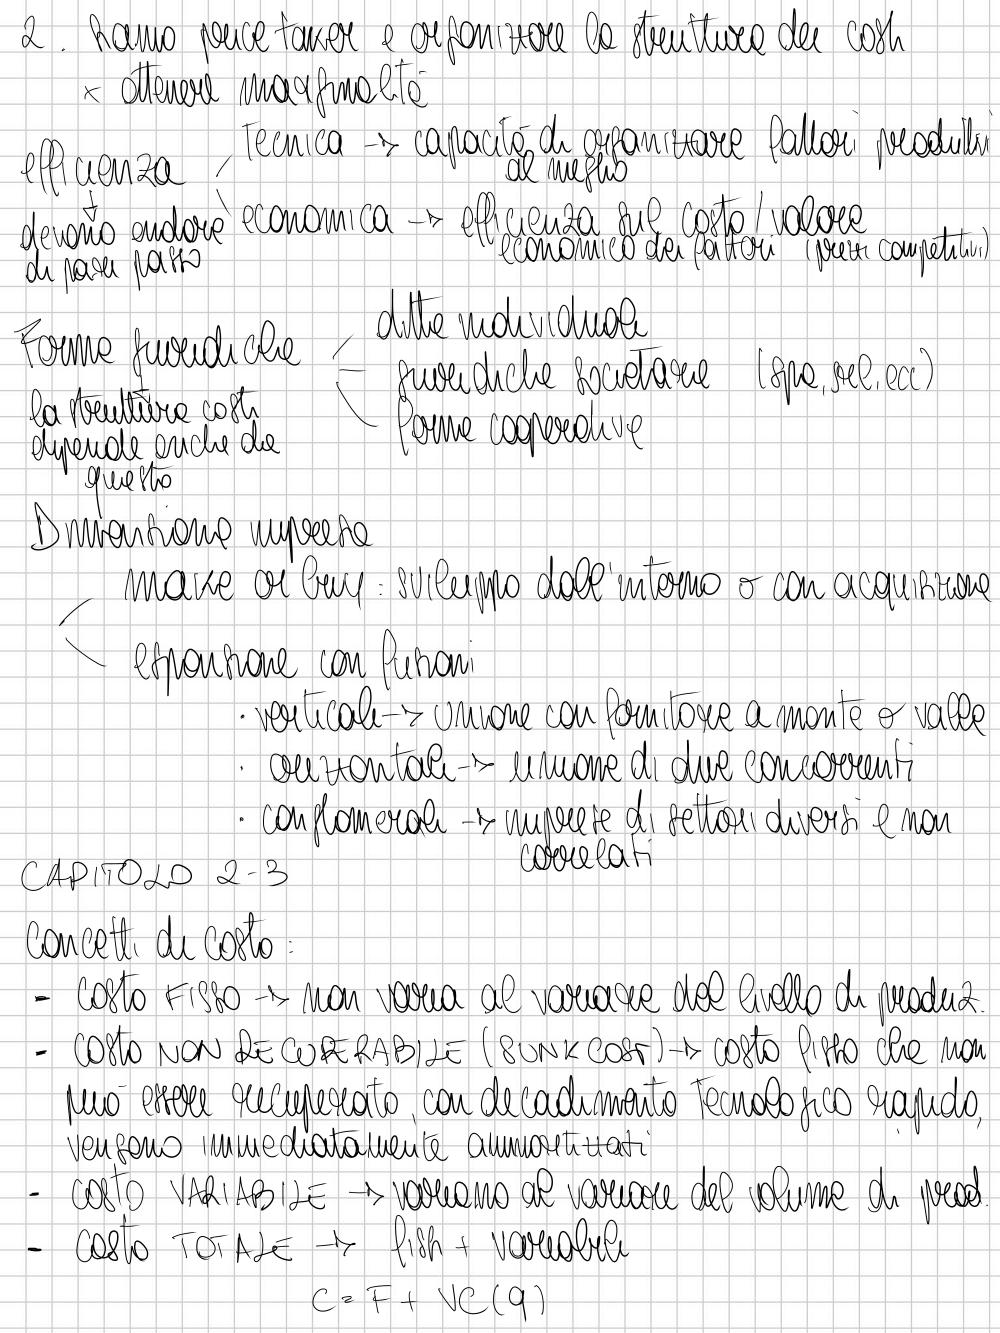 2. siamo price taker e organizzare la struttura dei costi
x ottenere marginalità
efficienza
tecnica -> capacità di organizzare fattori produttivi
al meglio
economica -> efficienza sul costo / valore
economico dei fattori (prezzi competitivi)
devono andare
di pari passo
Forme giuridiche
ditte individuali
giuridiche societarie (spa, srl, ecc)
forme cooperative
la struttura costi
dipende anche da
questo
Dimensione impresa
make or buy : sviluppo dall'interno o con acquisizione
espansione con fusioni
· verticali -> unione con fornitore a monte o valle
· orizzontali -> unione di due concorrenti
· conglomerali -> imprese di settori diversi e non
correlati
CAPITOLO 2-3
Concetti di costo :
- Costo FISSO -> non varia al variare del livello di produz.
- costo NON RECUPERABILE (SUNK COST) -> costo fisso che non
può essere recuperato, con decadimento tecnologico rapido,
vengono immediatamente ammortizzati
- costo VARIABILE -> variano al variare del volume di prod.
- Costo TOTALE -> fissi + variabili
C = F + VC(q)